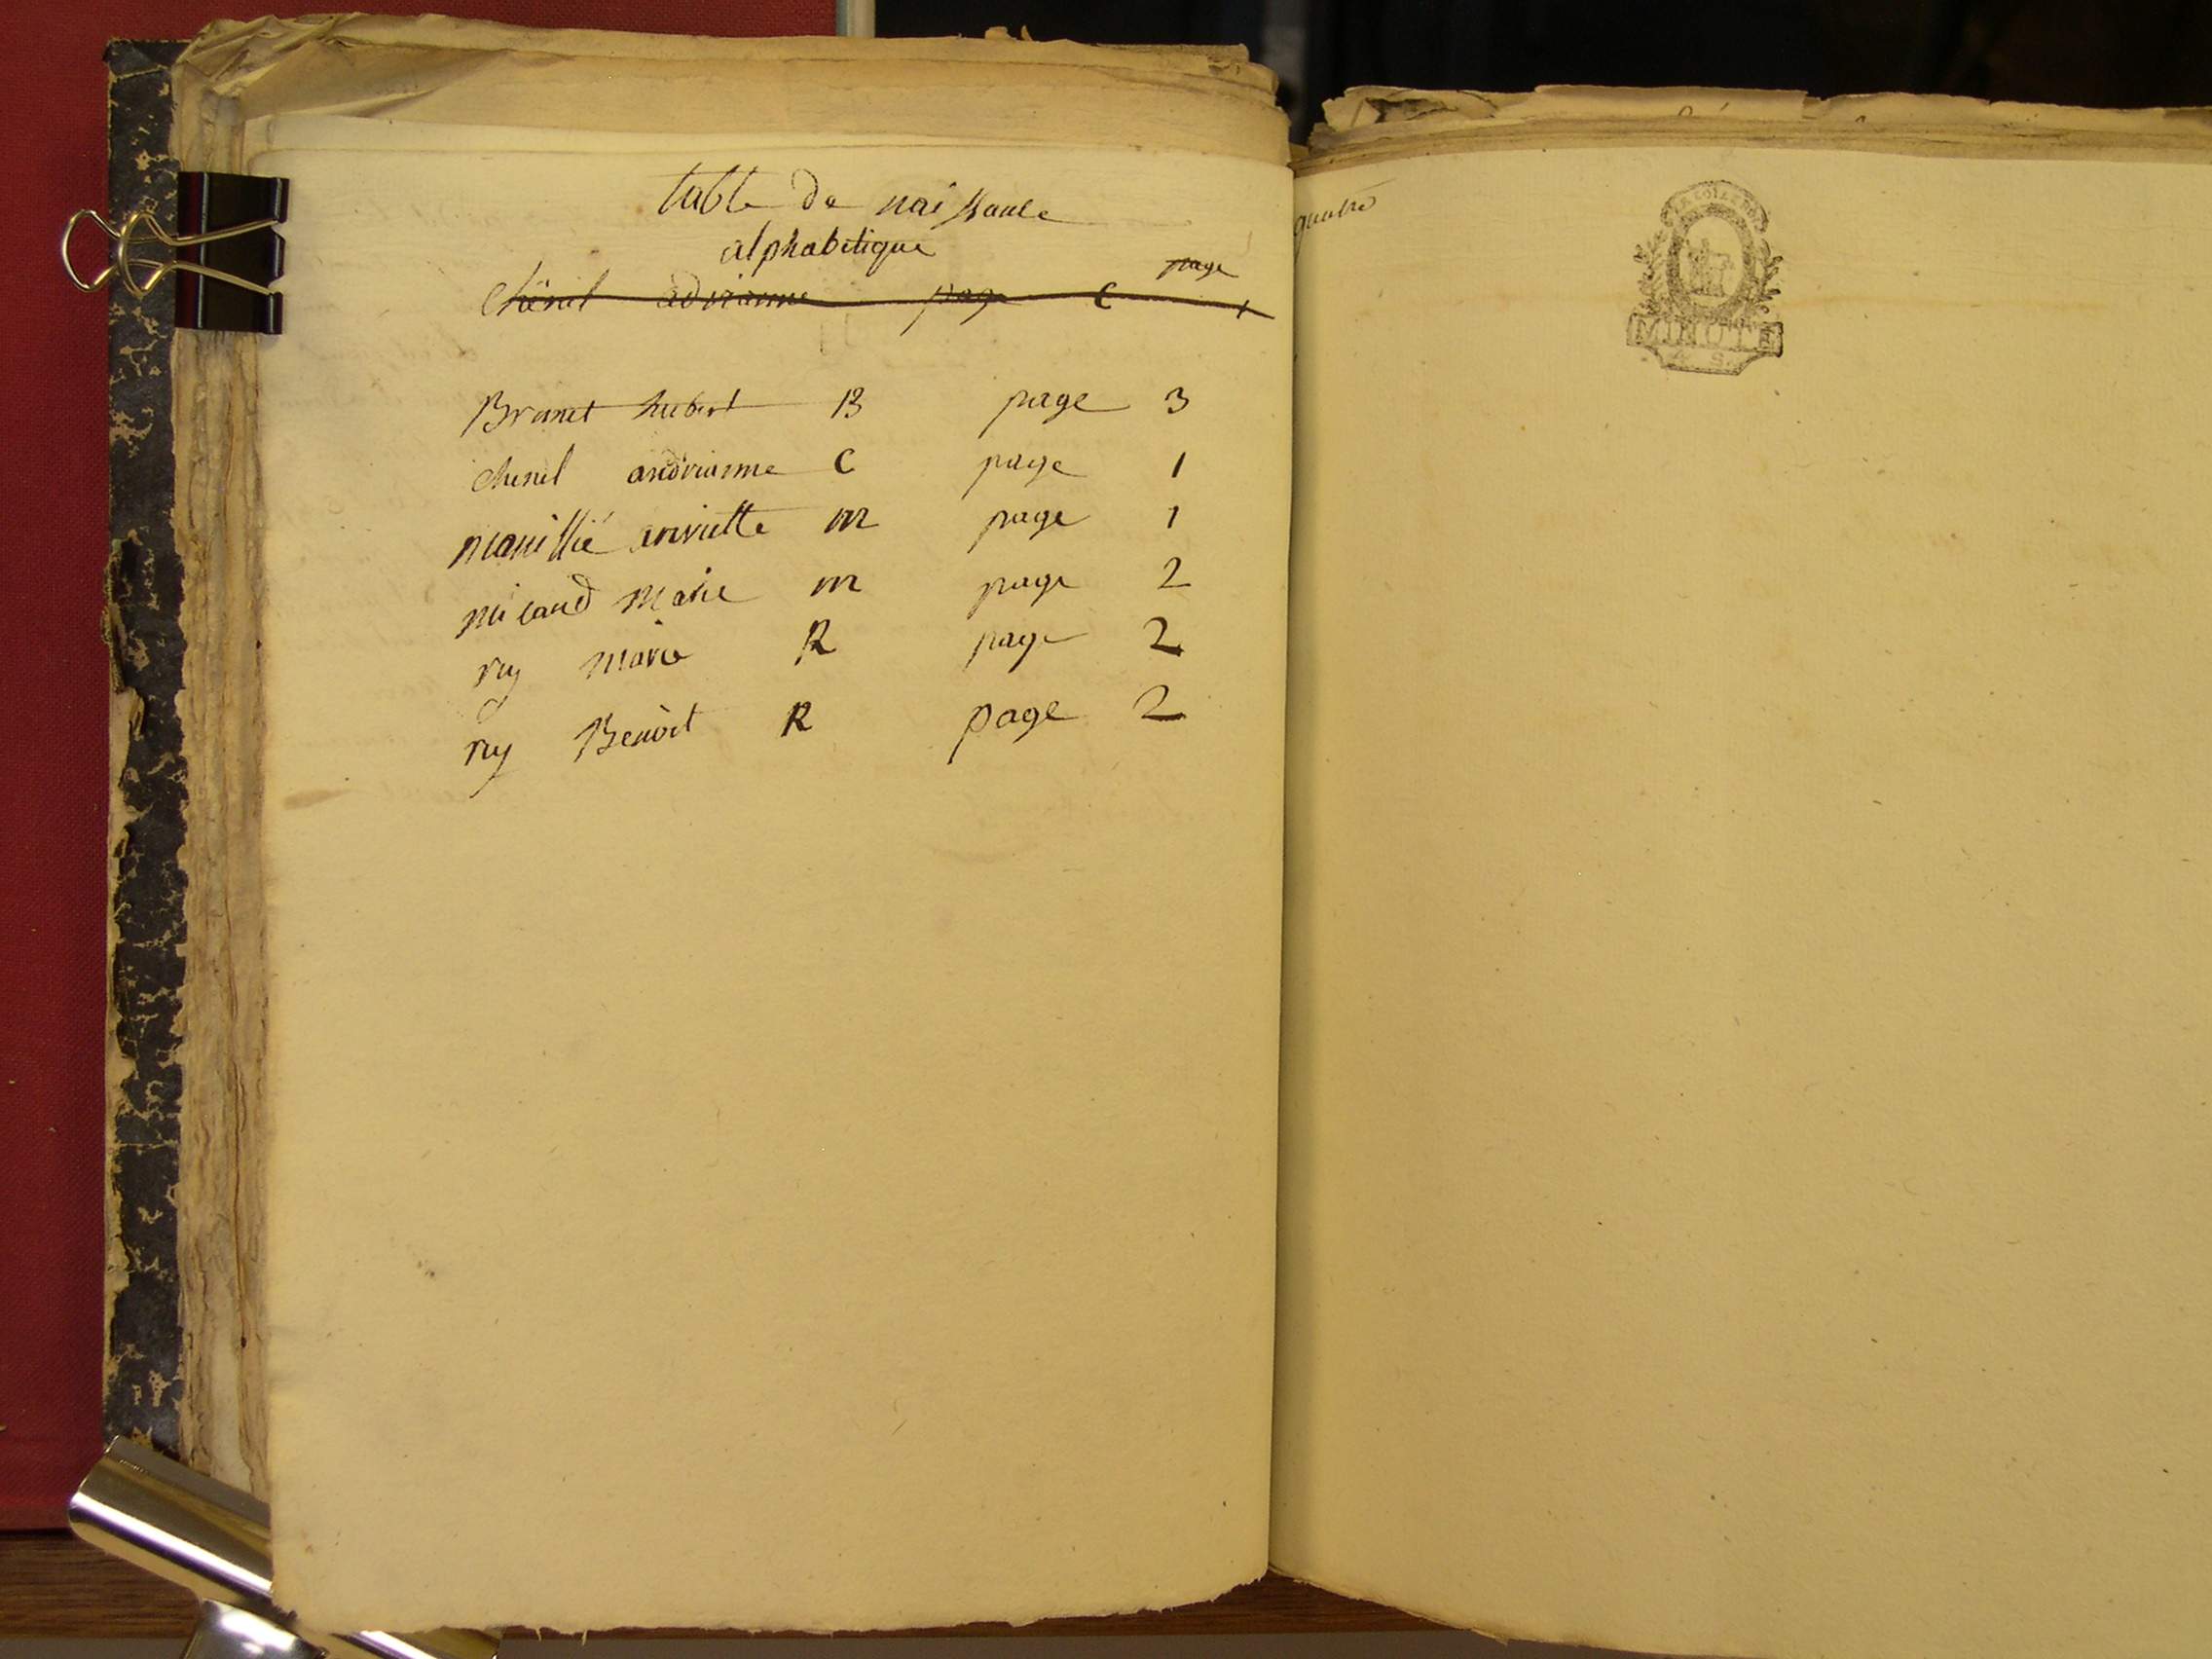 table de naissance
alphabetique
page
Chënel adrianne page C 1
Brunet hubert B page 3
chenel andrianne C page 1
mauillié anriette m page 1
micaud marie m page 2
rey marie R page 2
rey Benoit R page 2
quatre
MINUTE
4. S.